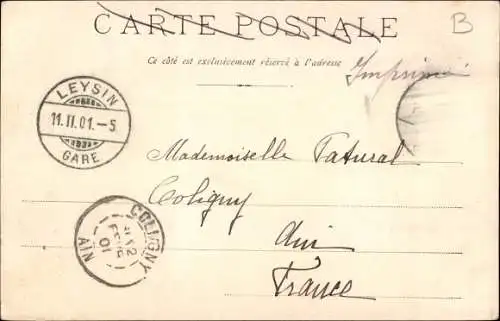 CARTE POSTALE
B
Ce côté est exclusivement réservé à l'adresse
Imprimé
LEYSIN
11.II.01.-5
GARE
Mademoiselle Patural
Coligny
Ain
France
COLIGNY
12
FEVR
01
AIN